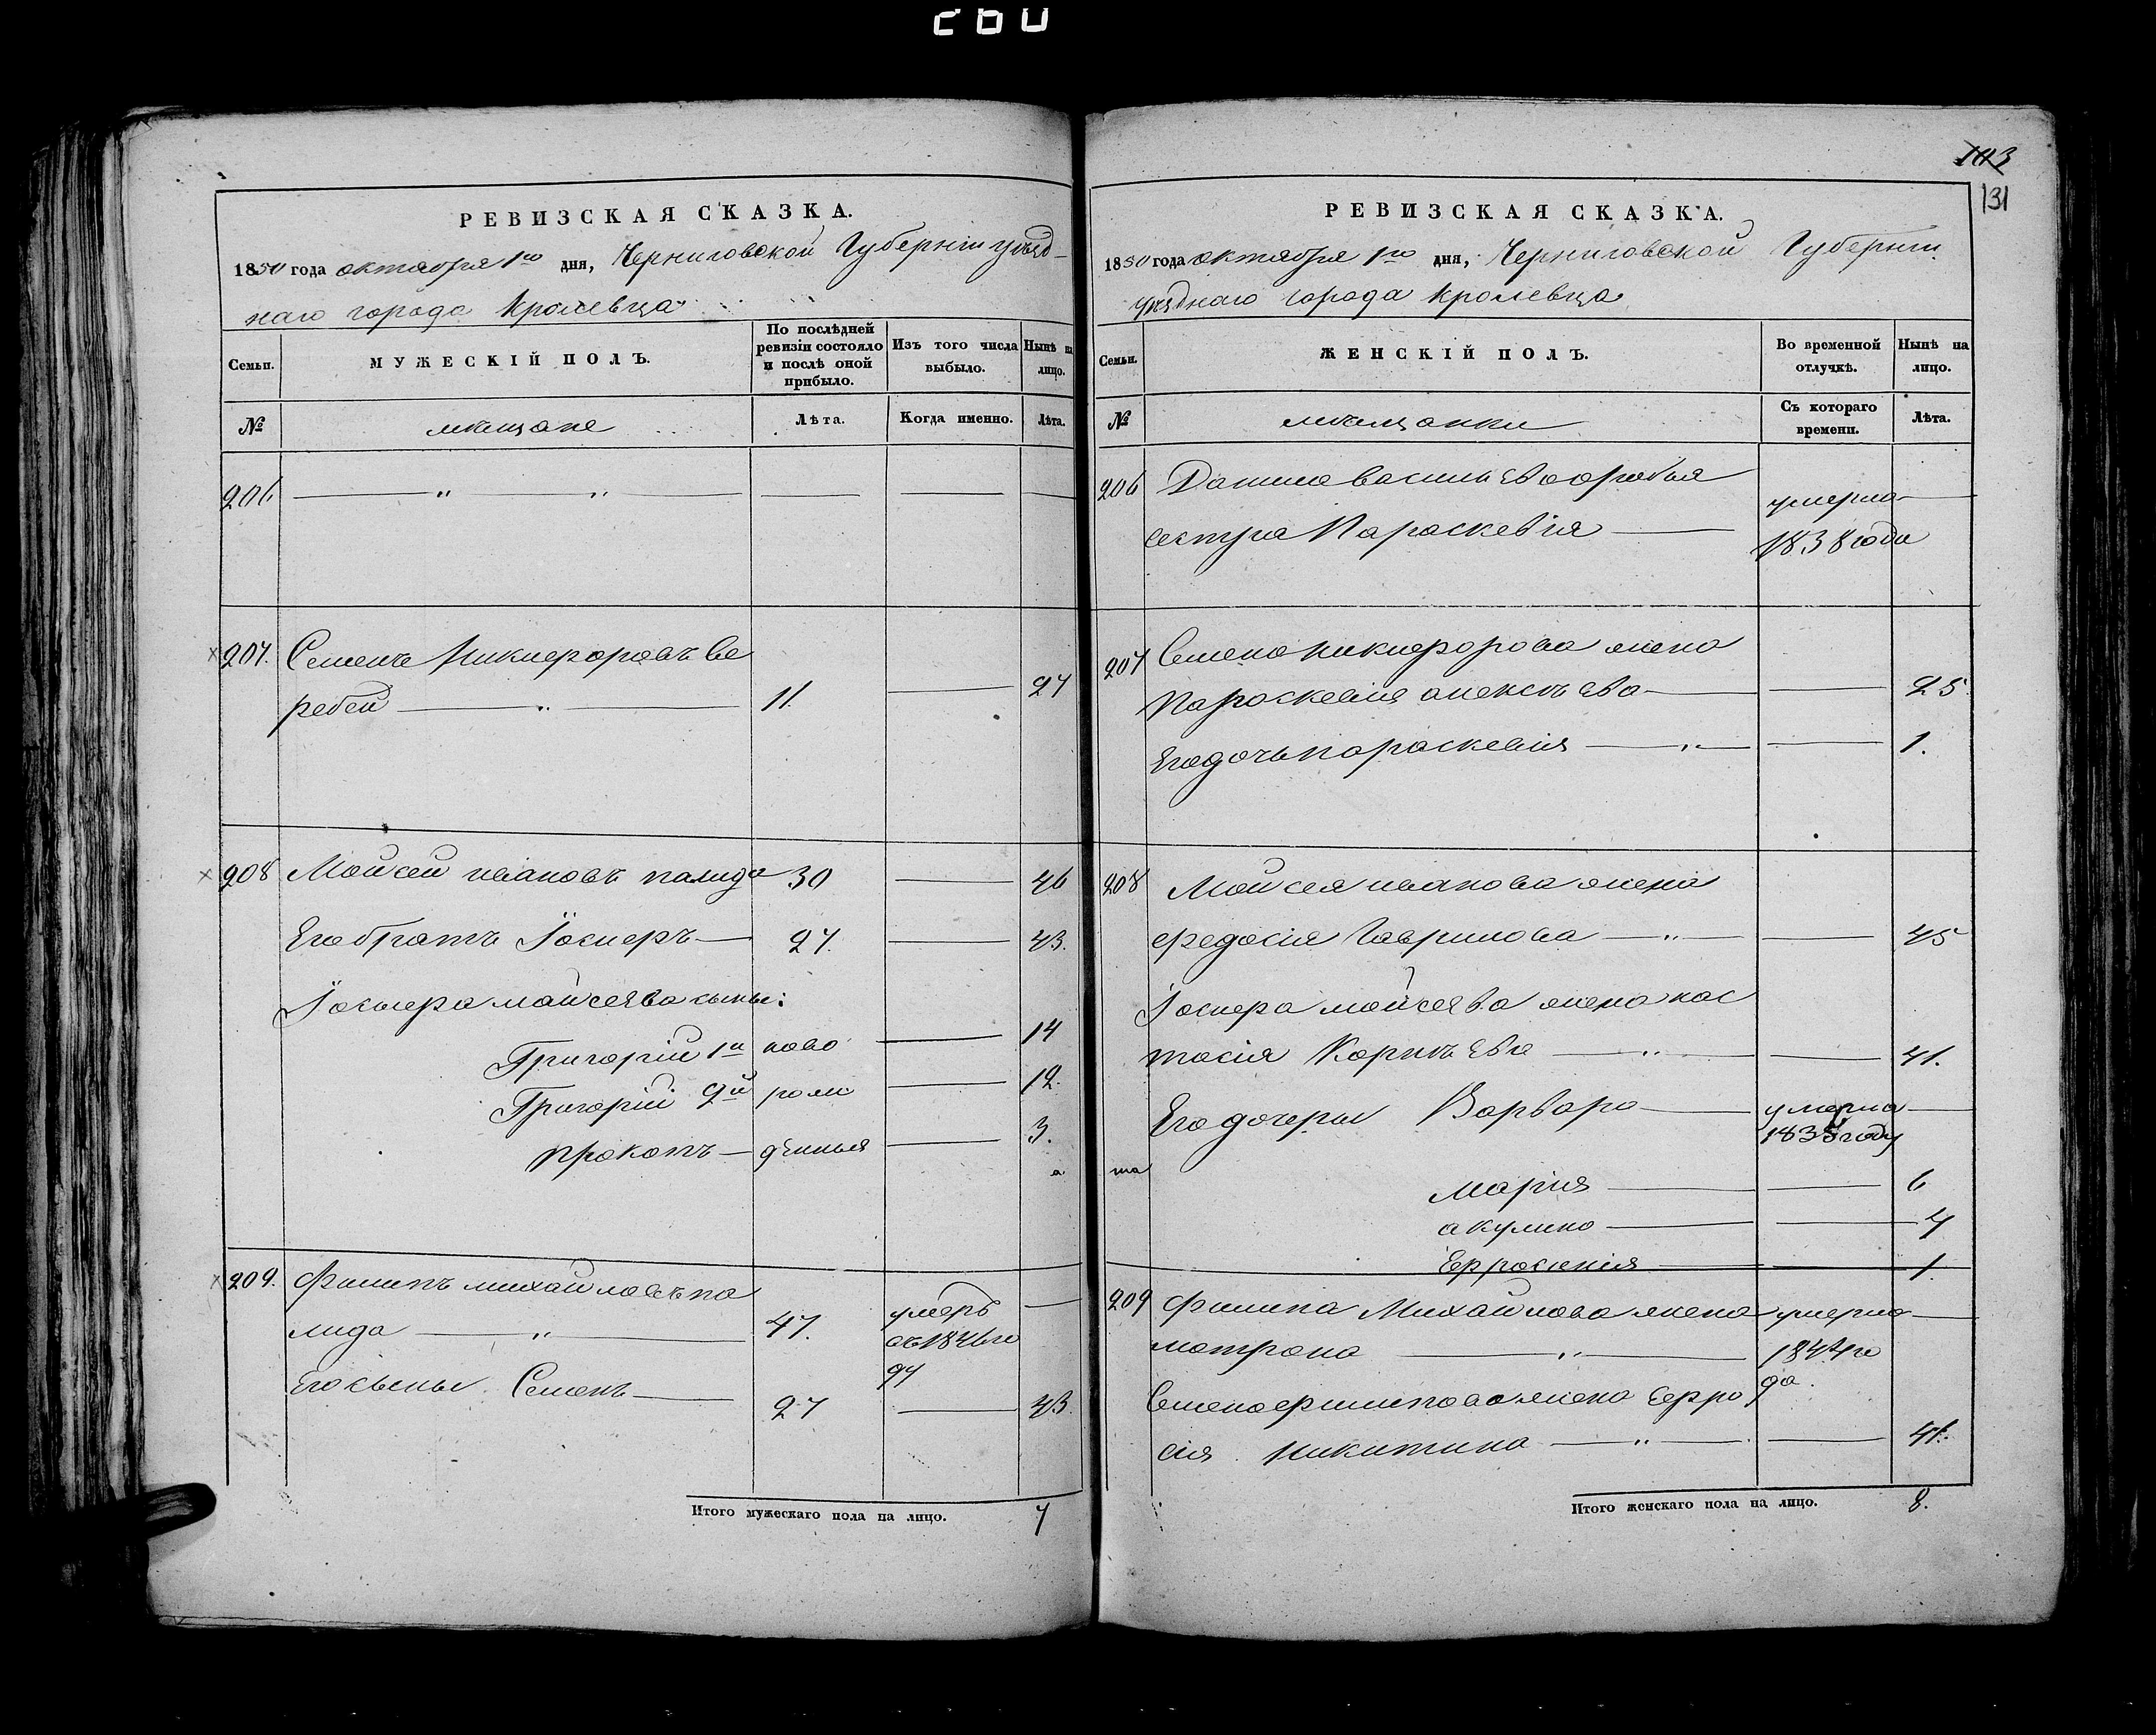 260
РЕВИЗСКАЯ СКАЗКА.
1850 года октября 1го дня, Черниговской Губернiи уѣзд-
наго города Кролевца
Семьи.
МУЖЕСКІЙ ПОЛЪ.
По послѣдней ревизіи состояло и послѣ оной прибыло.
Изъ того числа выбыло.
Нынѣ на лицо.
№
мѣщане
Лѣта.
Когда именно.
Лѣта.
206 — " " —
207. Семенъ Никифоровъ Ве
ребей — " — 11. — 27
208 Мойсей ивановъ палида 30 — 46
Его братъ Іосифъ — 27. — 43.
Іосифа мойсеева сыны:
Григорій 1й ново — 14
Григорій 2й рож — 12.
прокопъ — денныя — 3.
209. Филипъ михайловъ па
лида — " — 47. умеръ —
въ 1846 го
ду
Его сыны Семенъ — 27 — 43.
Итого мужескаго пола на лицо. 7
103
131
РЕВИЗСКАЯ СКАЗКА.
1850 года октября 1го дня, Черниговской Губернiи
уѣзднаго города Кролевца
Семьи.
ЖЕНСКІЙ ПОЛЪ.
Во временной отлучкѣ.
Нынѣ на лицо.
№
мѣщанки
Съ котораго времени.
Лѣта.
206 васильева
сестра Параскевія — умерла —
1838 года
207 Семена никифорова жена
Параскевія алексѣева — — 25
Его дочь параскевія — " — — 1.
208 Мойсея иванова жена
федосія Гаврилова — " — — 45
Іосифа мойсеева жена нас
тасія Корнѣева — " — — 41.
Его дочеры Варвара — умерла —
183 году
Марія — — 6
акулина — — 4
Ефросинія — — 1.
209 Филипа Михайлова жена умерла —
матрона — " — 1844 го
да.
Семена филипова жена Ефро
сія Никитина — " — — 41.
Итого женскаго пола на лицо. 8.